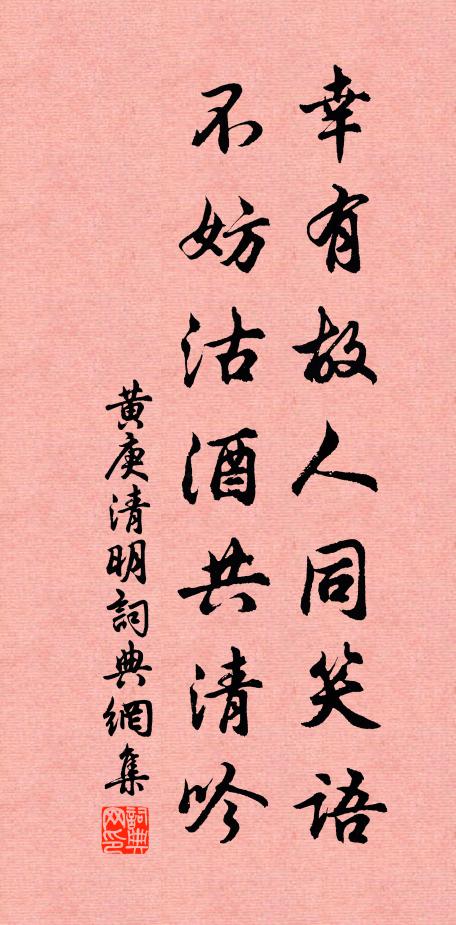 幸有故人同笑語
不妨沽酒共清吟
黄庚清明詞典網集
詞典
网印